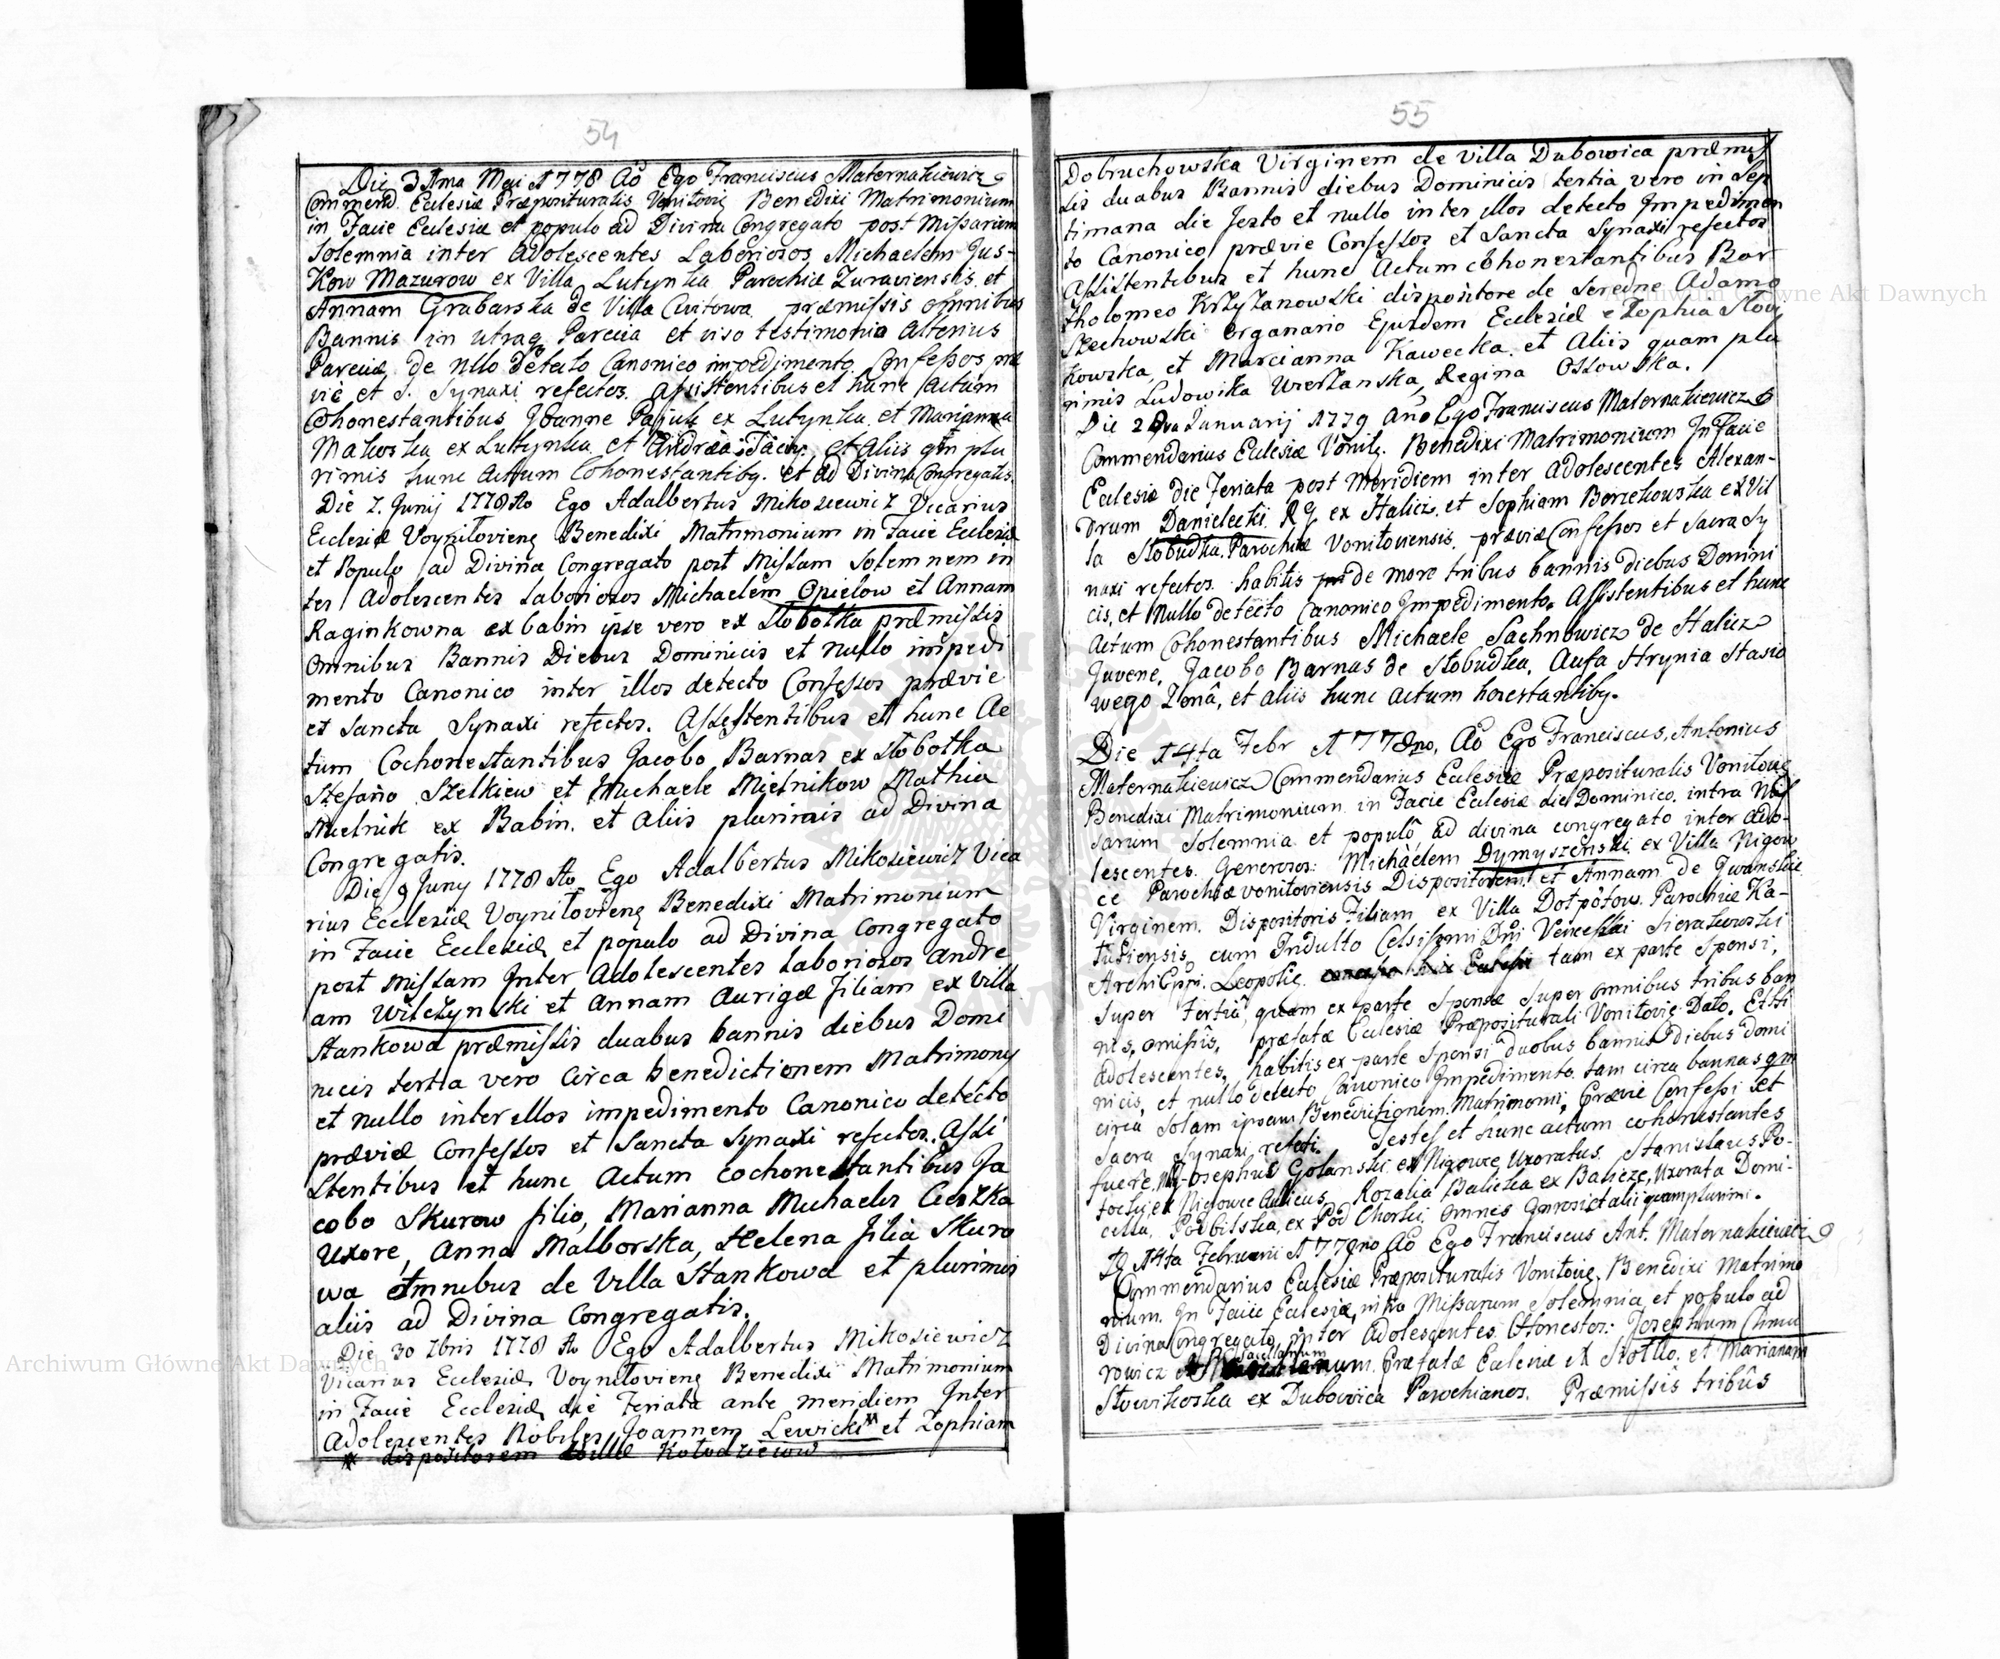 54
Die 31ma Maji 1778 Ao Ego Franciscus Maternakiewicz
Commend. Ecclesiæ Præposituralis Vonitovię Benedixi Matrimonium
in Facie Ecclesiæ et populo ad Divina Congregato post Missarum
Solemnia inter Adolescentes Laboriosos Michaelem Jus-
kow Mazurow ex Villa Lutynka Parochiæ Zuraviensis et
Annam Grabarska de Villa præmissis omnibus
Bannis in utraq Parcia et viso testimonio alterius
Parciæ de nllo detecto Canonico impedimento Confessos præ
vie et S. Synaxi refectos. Assistentibus et hunc Actum
Cohonestantibus Joanne ex Lutynka et Marianna
Makoska ex Lutynka et Andrea et Aliis qm plu
rimis hunc Actum Cohonestantiby. et ad Divina Congregatis.
Die 7. Junij 1778 Ao Ego Adalbertus Mikosiewicz Vicarius
Ecclesiæ Voynilovienę Benedixi Matrimonium in Facie Ecclesiæ
et Populo ad Divina Congregato post Missam Solemnem in
ter Adolescentes Laboriosos Michaelem Opielow et Annam
Raginkowna ex babin ipse vero ex Słobotka præmissis
omnibus Bannis Diebus Dominicis et Nullo impedi
mento Canonico inter illos detecto Confessos prævie
et Sancta Synaxi refectos. Assestentibus et hunc Ac
tum Cochonestantibus Jacobo Barnas ex Słobotka
Stefano Szelkiew et Michaele Mielnikow Mathia
Mielnik ex Babin. et aliis plurimis ad Divina
Congregatis.
Die 9 Juny 1778 Ao Ego Adalbertus Mikosiewicz Vica
rius Ecclesiæ Voynilovienę Benedixi Matrimonium
in Facie Ecclesiæ et populo ad Divina Congregato
post Missam Inter Adolescentes Laboriosos Andre
am Wilczynski et Annam Aurigæ filiam ex Villa
Stankowa præmissis duabus bannis diebus Domi
nicis tertia vero Circa benedictionem Matrimony
et nullo inter illos impedimento Canonico detecto
præviæ Confessos et Sancta Synaxi refectos. Assi
stentibus et hunc Actum cochonestantibus Ja
cobo Skurow filio, Marianna Michaelis Cieszka
Uxore, Anna Malborska, Helena filia Skuro
wa omnibus de Villa Stankowa et plurimis
aliis ad Divina Congregatis.
Die 30 7bris 1778 Ao Ego Adalbertus Mikosiewicz
Vicarius Ecclesiæ Voynilovienę Benedixi Matrimonium
in Facie Ecclesiæ die Feriata ante meridiem Inter
Adolescentes Nobiles Joannem Lewicki et Zophiam
* dispositorem Kołodziejow
55
Dobruchowska Virginem de Villa Dubowica præmis
sis duabus Bannis diebus Dominicis tertia vero in Sep
timana die festo et nullo inter illos detecto Impedimen
to Canonico prævie Confessos et Sancta Synaxi refectos
Assistentibus et hunc Actum cohonestantibus Bar
tholomeo Krzyżanowski dispositore de Seredne Adamo
Stechowski organario Ejusdem Ecclesiæ Zophia Słow
kowska et Marcianna Kawecka et Aliis quam plu
rimis Ludowika Wierzanska Regina Ossowska.
Die 2da Januarij 1779 Ano Ego Franciscus Maternakiewicz
Commendarius Eclesiæ Vonitę. Benedixi Matrimonium In facie
Eclesiæ die Feriata post Meridiem inter Adolescentes Alexan-
drum Danielecki ex Halicz. et Sophiam Borzekowska ex Vil
la Słobudka Parochiæ Vonitoviensis. præviæ Confessos et Sacra Sy
naxi refectos. habitis de more tribus bannis diebus Domini
cis, et Nullo detecto Canonico Impedimento. Assistentibus et hunc
Actum Cohonestantibus Michaele Sachnowicz de Halicz
Juvene, Jacobo Barnas de Słobudka, Aufa Hrynia Stasio
wego Zoná, et aliis hunc actum honestantiby.
Die 14ta Febr 1779no, Ao Ego Franciscus, Antonius
Maternakiewicz Commendarius Eclesiæ Præposituralis Vonitovię
Benedixi Matrimonium in Facie Eclesiæ die Dominico. intra Mis
sarum Solemnia et populô ad divina congregato inter Ado-
lescentes. Generosos: Michàelem Dymyszenski ex Villa Nigow
ce Parochiæ vonitoviensis Dispositorem et Annam de Iwanskie
Virginem. Dispositoris Filiam ex Villa Dołpotow. Parochiæ Ka-
łusiensis, cum Indulto Celsissimi Dni Venceslai Sierakowski
ArchiEppi. Leopolię. tam ex parte Sponsi,
super tertiâ, quam ex parte Sponsæ super omnibus tribus ban
nis, omissis, præfatæ Eclesiæ Præposituráli Vonitovię Dato.
adolescentes, habitis ex parte Sponsi duobus bannis Diebus domi
nicis, et nullo detecto Canonico Impedimento. tam circa bannas qm
circa Solam ipsam Benedictionem Matrimonii, Prævie Confessi et
Sacra Synaxi refecti. Testes et hunc actum cohonestantes
fuere. Josephus Golanski. ex Nigowce Uxoratus. Stanislaus Po-
tocki ex Nigowce Aulicus. Rozalia Balicka ex Balicze, Uxorata Domi-
cella, Podbilska, ex Pod Chorki. omnes Generosi et alii quam plurimi.
D 14ta Februarii 1779no Ao Ego Franciscus Ant. Maternakiewicz
Commendarius Eclesiæ Præposituralis Vonitovię, Benedixi Matrimo
nium. In Facie Eclesiæ, intra Missarum Solemnia et populo ad
Divina Congregato, inter Adolescentes. Honestos: Josephum Climu
rowicz Sacellanum Præfatæ Eclesiæ et Marianam
Słowikoska ex Dubowica Parochianos. Præmissis tribûs
Archiwum Główne Akt Dawnych
Archiwum Główne Akt Dawnych